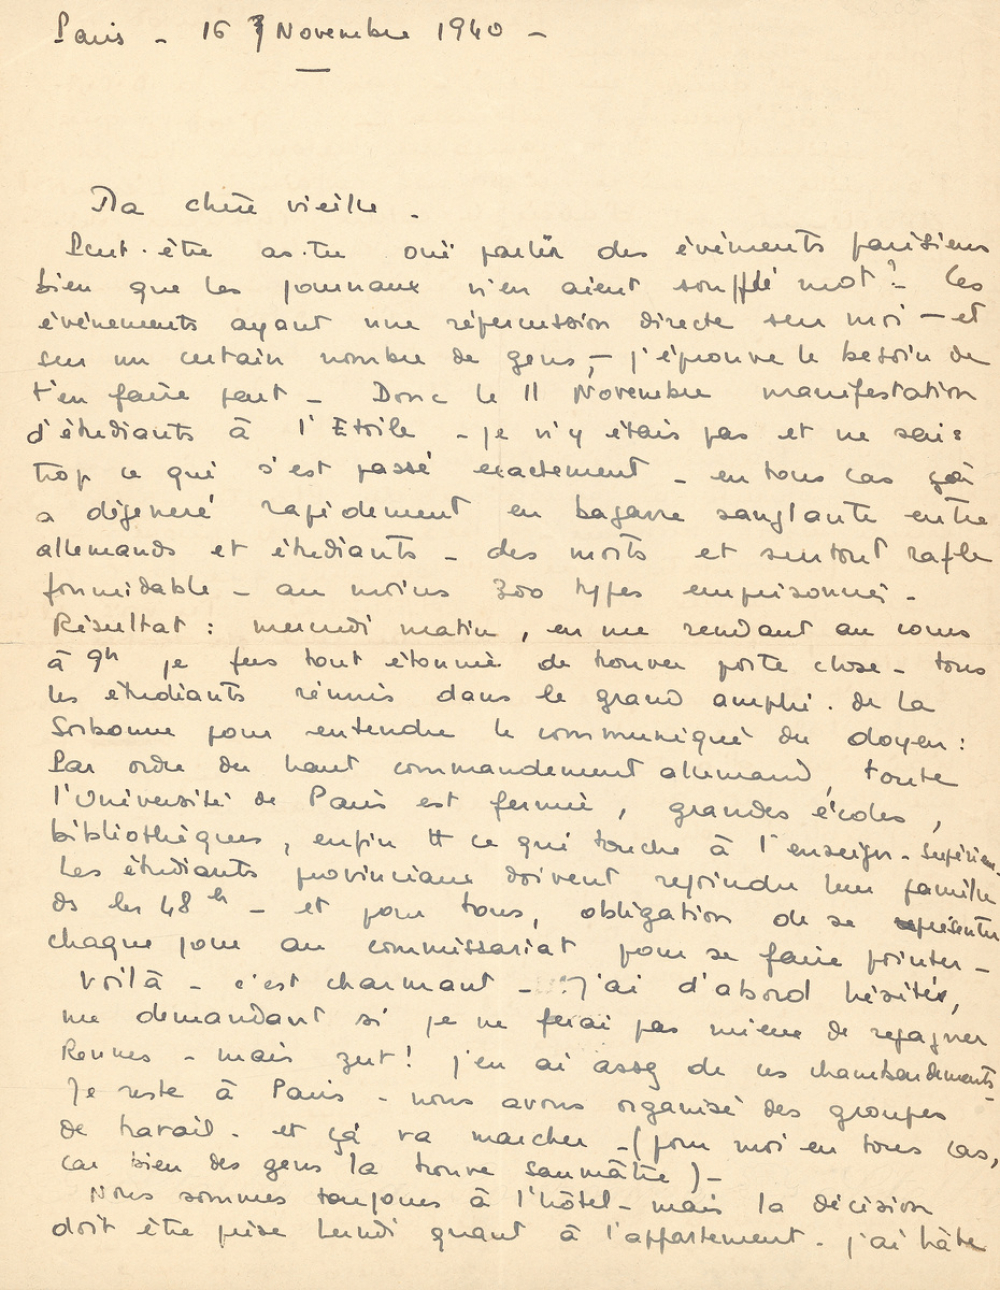 Paris - 16 Novembre 1940 -
Ma chère vieille.
Peut-être as-tu ouï parler des évènements parisiens
bien que les journaux n'en aient soufflé mot? - Ces
évènements ayant une répercussion directe sur moi - et
sur un certain nombre de gens, - j'éprouve le besoin de
t'en faire part - Donc le 11 Novembre manifestation
d'étudiants à l'Etoile - je n'y étais pas et ne sais
trop ce qui s'est passé exactement - en tous cas çà
a dégénéré rapidement en bagarre sanglante entre
allemands et étudiants - des morts et surtout rafle
formidable - au moins 300 types emprisonnés -
Résultat : mercredi matin, en me rendant au cours
à 9h je fus tout étonnée de trouver porte close - tous
les étudiants réunis dans le grand amphi. de la
Sorbonne pour entendre le communiqué du doyen :
Par ordre du haut commandement allemand, toute
l'Université de Paris est fermée, grandes écoles,
bibliothèques, enfin tt ce qui touche à l'enseign. supérieur.
Les étudiants provinciaux doivent rejoindre leur famille
ds les 48h - et pour tous, obligation de se présenter
chaque jour au commissariat pour se faire pointer -
Voilà - c'est charmant - J'ai d'abord hésité,
me demandant si je ne ferai pas mieux de regagner
Rennes - mais zut! j'en ai assez de ces chambardements -
Je reste à Paris - nous avons organisé des groupes
de travail - et çà va marcher - (pour moi en tous cas,
car bien des gens la trouve saumâtre) -
Nous sommes toujours à l'hôtel - mais la décision
doit être prise Lundi quant à l'appartement - j'ai hâte